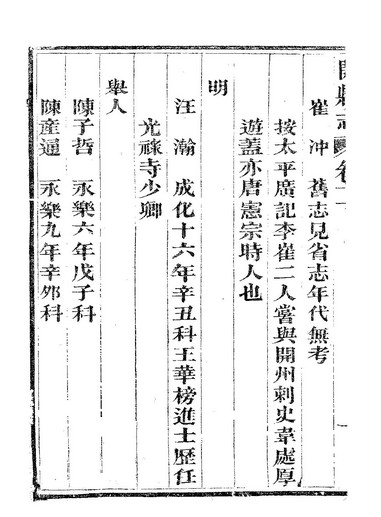 開縣志 卷二
崔冲 舊志見省志年代無考
按太平廣記李崔二人嘗與開州刺史韋處厚
遊蓋亦唐憲宗時人也
明
汪瀚 成化十六年辛丑科王華榜進士歷任
光祿寺少卿
舉人
陳子哲 永樂六年戊子科
陳産通 永樂九年辛夘科